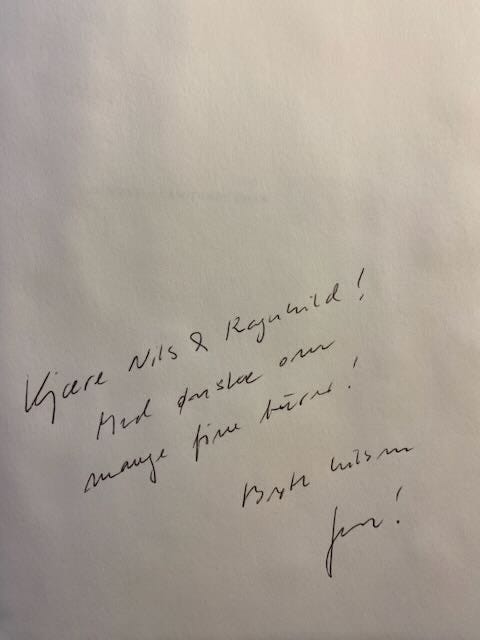 Kjære Nils & Ragnhild!
Med ønske om
mange fine turer!
Beste hilsen